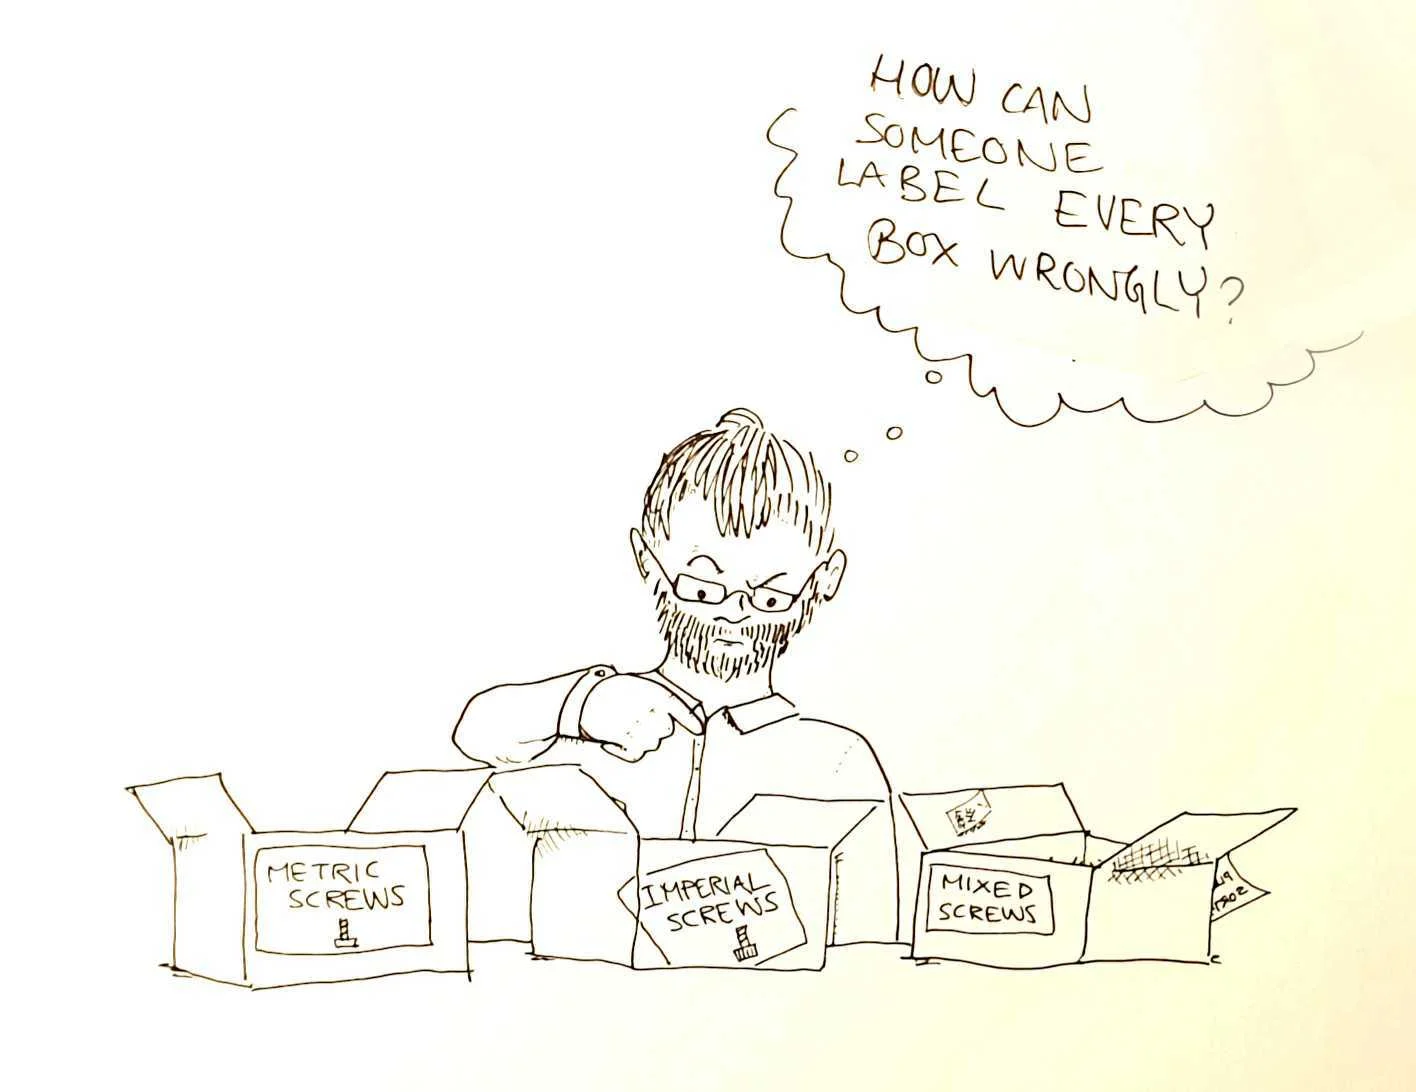 HOW CAN
SOMEONE
LABEL EVERY
BOX WRONGLY?
METRIC
SCREWS
IMPERIAL
SCREWS
MIXED
SCREWS